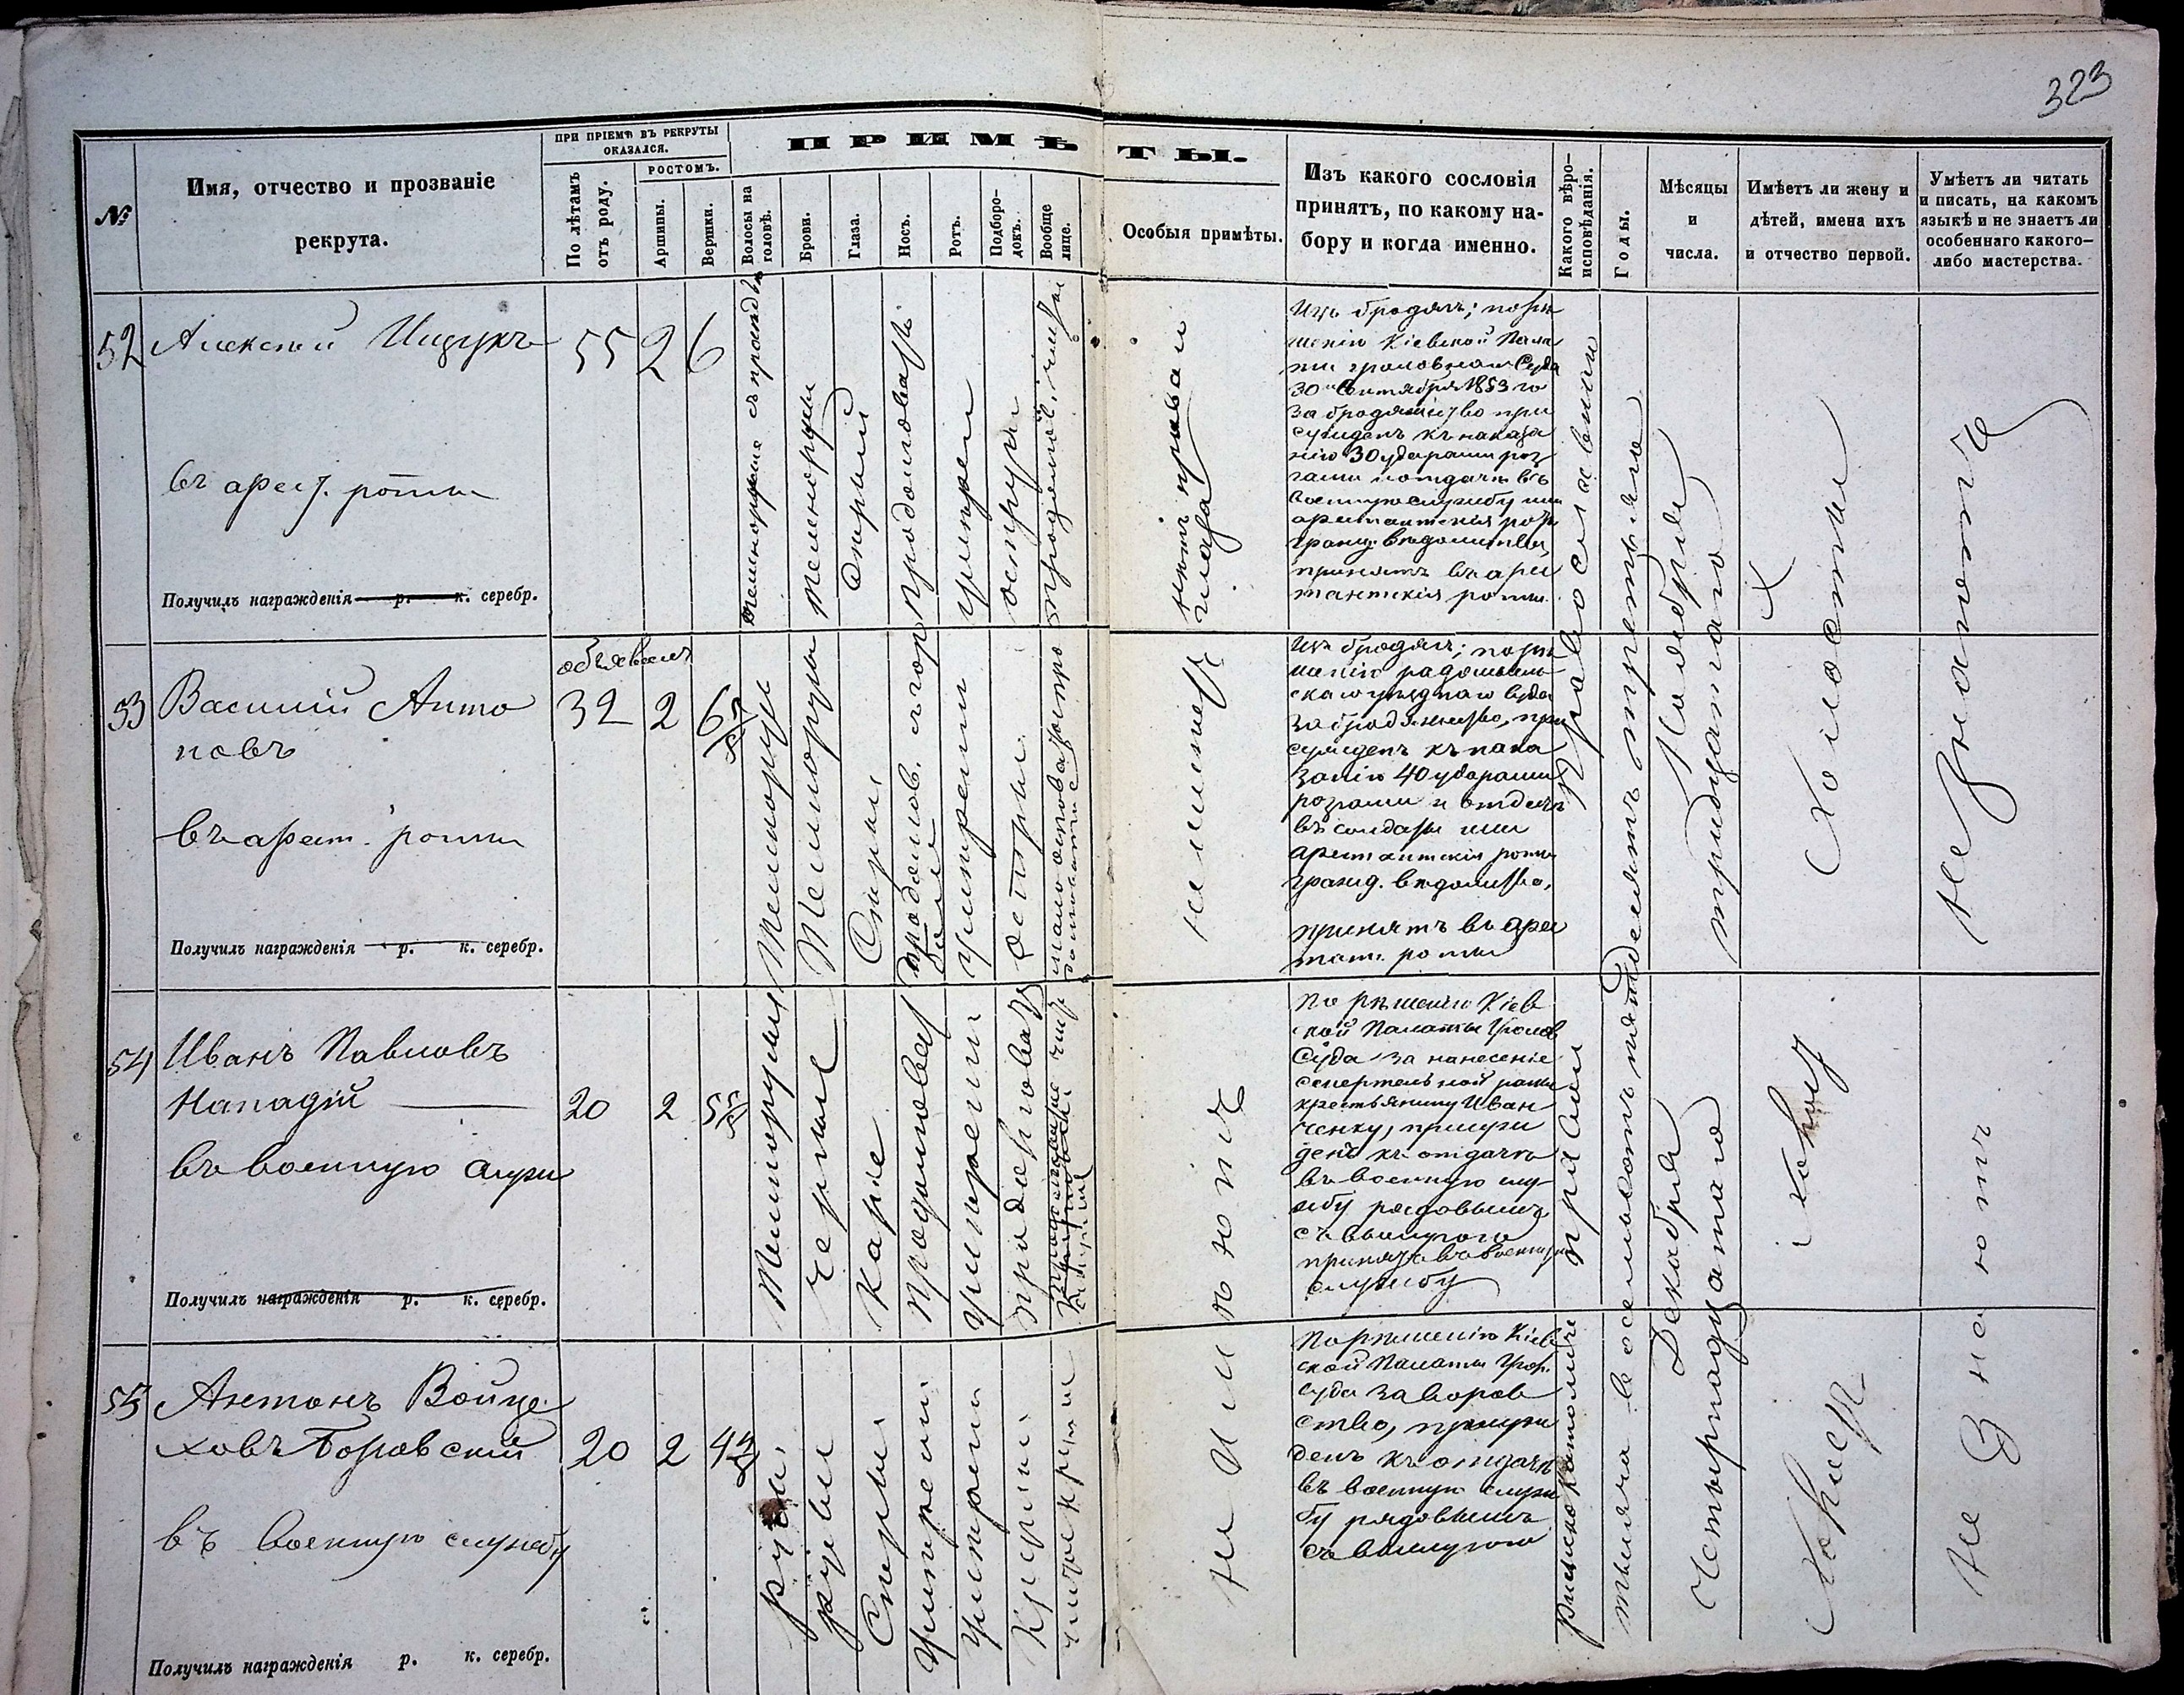 323
№
Имя, отчество и прозваніе
рекрута.
ПРИ ПРІЕМѢ ВЪ РЕКРУТЫ
ОКАЗАЛСЯ.
По лѣтамъ
отъ роду.
РОСТОМЪ.
Аршины.
Вершки.
ПРИМѢТЫ.
Волосы на
головѣ.
Брови.
Глаза.
Носъ.
Ротъ.
Подборо-
докъ.
Вообще
лице.
Особыя примѣты.
Изъ какого сословія
принятъ, по какому на-
бору и когда именно.
Какого вѣро-
исповѣданія.
Годы.
Мѣсяцы
и
числа.
Имѣетъ ли жену и
дѣтей, имена ихъ
и отчество первой.
Умѣетъ ли читать
и писать, на какомъ
языкѣ и не знаетъ ли
особеннаго какого-
либо мастерства.
52
Алексѣй
въ арест. роты
Получилъ награжденія р. к. серебр.
55
2
6
темнорусые
сѣрые
продолговатый
умѣренъ
острый
нѣтъ праваго
глаза
Изъ бродягъ; по рѣ
шенію Кіевской Пала
ты уголовнаго Суда
30 Сентября 1853 го
за бродяжество при
сужденъ къ наказа
нію 30 ударами роз
гами и отдачѣ въ
военную службу или
арестантскія роты
гражд. вѣдомства,
принятъ въ арес
тантскія роты
православный
тысяча восемьсотъ пятьдесятъ третьяго
Ноября
тридцатаго
Холостъ
Не знаетъ
53
Василій Анто
новъ
въ арест. роты
Получилъ награжденія р. к. серебр.
объявилъ
32
2
6 5/8
Темнорус
Сѣрые
продолгов. съ гор
умѣрен
острый
не имѣетъ
Изъ бродягъ; по рѣ
шенію радомысль
скаго уѣзднаго Суда
за бродяжество, при
сужденъ къ нака
занію 40 ударами
розгами и отдачѣ
въ солдаты или
арестантскія роты
гражд. вѣдомства,
принятъ въ арес
тант. роты
54
Иванъ Павловъ
въ военную служ
Получилъ награжденія р. к. серебр.
20
2
5 5/8
Темнорусые
черные
Каріе
продолговат
умѣренъ
По рѣшенію Кіев
ской Палаты Уголов
Суда за нанесеніе
смертельной раны
крестьянину Иван
ченку, присуж
денъ къ отдачѣ
въ военную слу
жбу рядовымъ
съ выслугою
принятъ въ военную
службу
Декабря
Четырнадцатаго
холост
не знаетъ
55
Антонъ Войце
ховъ Боровскій
въ военную службу
Получилъ награжденія р. к. серебр.
20
2
4 4/8
русые
Сѣрые
Умѣрен
умѣрен
Круглый
чистое
не имѣетъ
По рѣшенію Кіев
ской Палаты Угол.
суда за воров
ство, присуж
денъ къ отдачѣ
въ военную служ
бу рядовымъ
съ выслугою
римскокатоличе
Холост